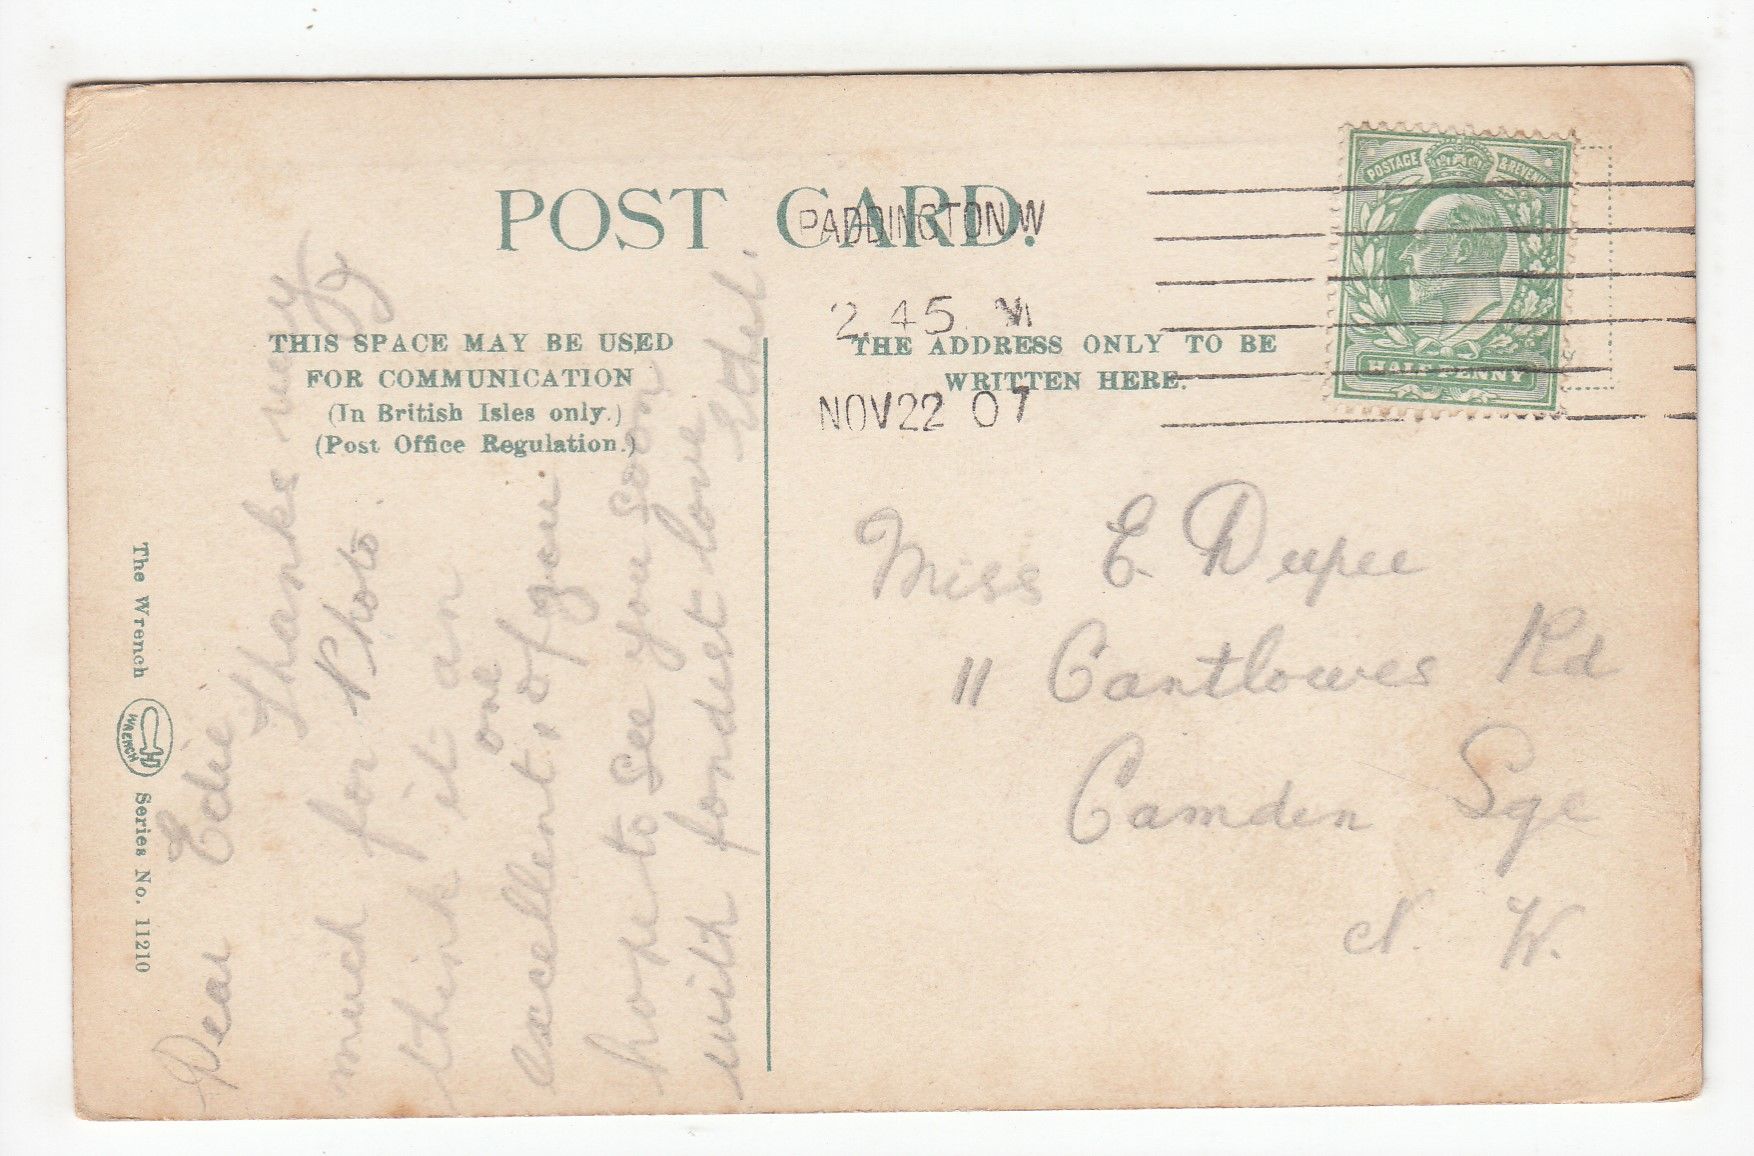 POST CARD.
PADDINGTON.W
2 45 M
NOV 22 07
POSTAGE & REVENUE
HALF PENNY
THIS SPACE MAY BE USED
FOR COMMUNICATION
(In British Isles only.)
(Post Office Regulation.)
THE ADDRESS ONLY TO BE
WRITTEN HERE.
The Wrench
WRENCH
Series No. 11210
Dear Edie
Thanks very
much for Photo.
think it an
excellent one of you
hope to see you soon
with fondest love
Ethel.
Miss E. Dupee
11 Cantlowes Rd
Camden Sqe
N. W.